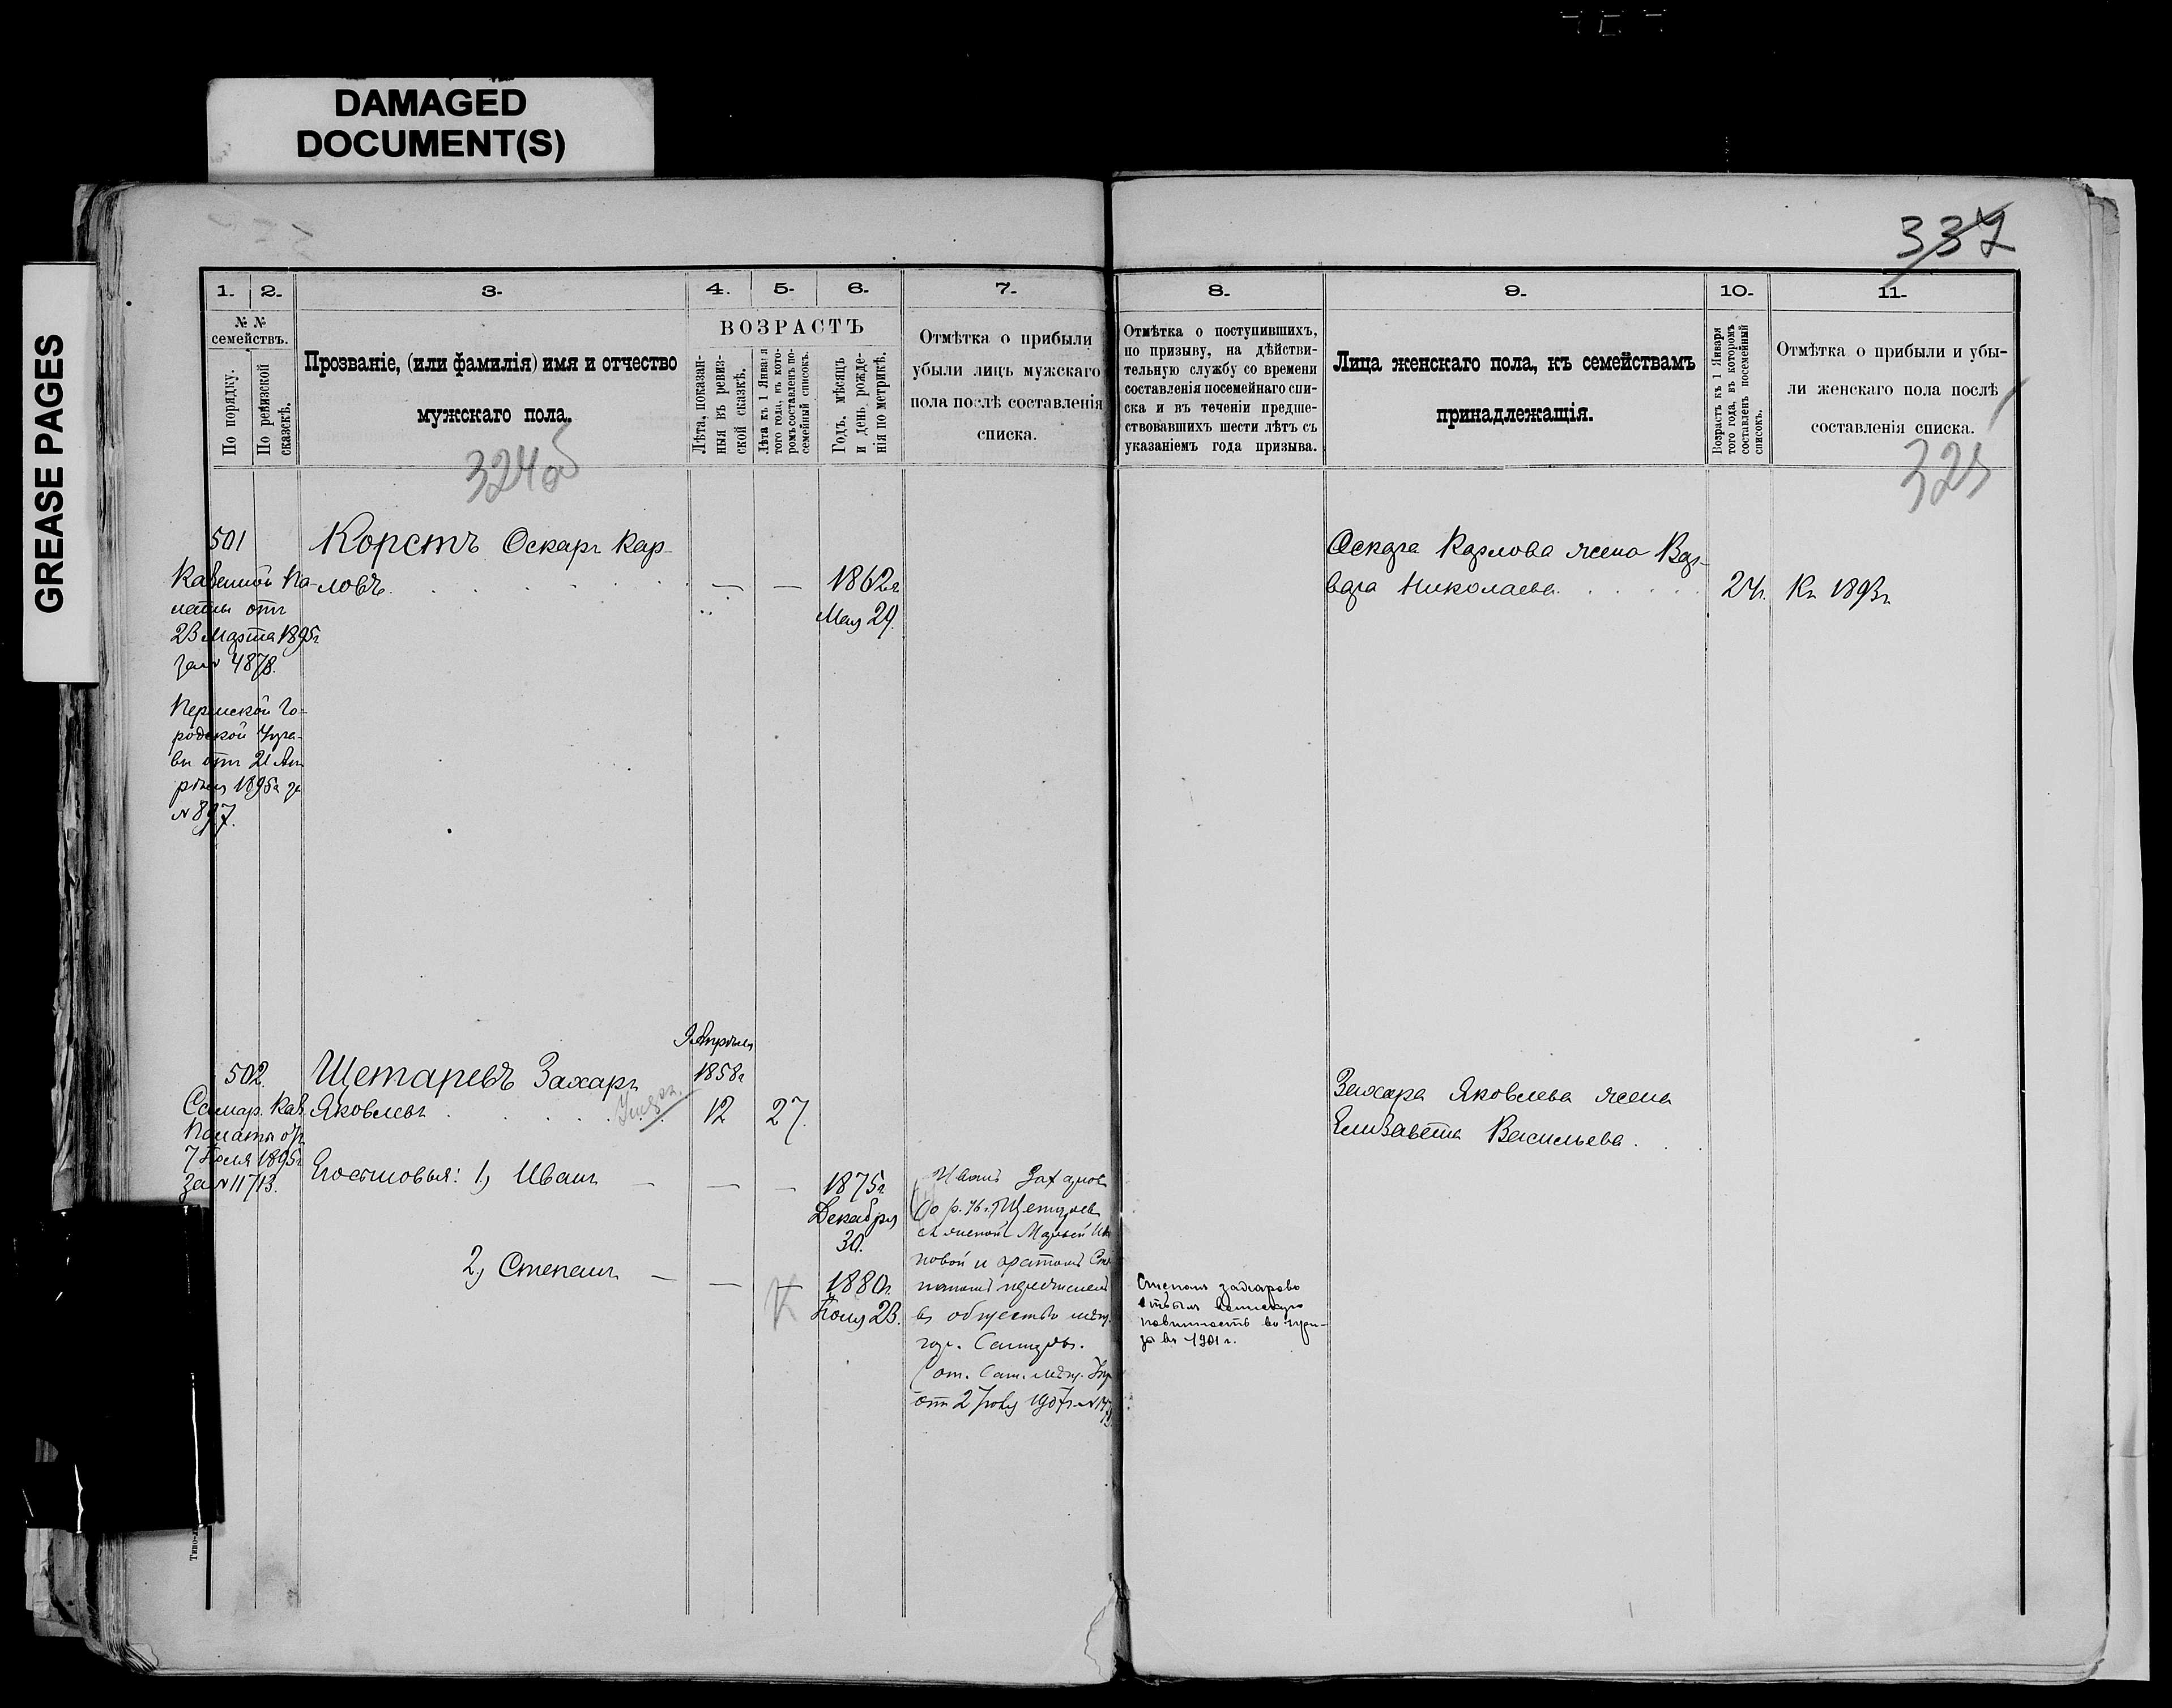 DAMAGED
DOCUMENT(S)
GREASE PAGES
337
1.
2.
3.
4.
5.
6.
7.
8.
9.
10.
11.
№ №
семействъ.
По порядку.
По ревизской
сказкѣ.
Прозваніе, (или фамилія) имя и отчество
мужскаго пола.
ВОЗРАСТЪ
Лѣта, показан-
ныя въ ревиз-
ской сказкѣ.
Лѣта къ 1 Января
того года, въ кото-
ромъ составленъ по-
семейный списокъ.
Годъ, мѣсяцъ
и день рожде-
нія по метрикѣ.
Отмѣтка о прибыли
убыли лицъ мужскаго
пола послѣ составленія
списка.
Отмѣтка о поступившихъ,
по призыву, на дѣйстви-
тельную службу со времени
составленія посемейнаго спи-
ска и въ теченіи предше-
ствовавшихъ шести лѣтъ съ
указаніемъ года призыва.
Лица женскаго пола, къ семействамъ
принадлежащія.
Возрастъ къ 1 Января
того года, въ которомъ
составленъ посемейный
списокъ.
Отмѣтка о прибыли и убы-
ли женскаго пола послѣ
составленія списка.
324об
325
501
Казенной Па-
латы отъ
23 Марта 1895г.
за № 4878.
Пермской Го-
родской Упра-
вы отъ 21 Ап
рѣля 1895г за
№ 897.
Корстъ Оскаръ Кар-
ловъ
— — 1862г
Мая 29.
Оскара Карлова жена Вар-
вара Николаева
24. Къ 1893г
502.
Самар. Каз.
Палаты отъ
7 Іюля 1895г
за № 11713.
Щетаревъ Захаръ
Яковлевъ
Апрѣля
1858г
12 27.
Его сыновья: 1, Иванъ — — —
1875г.
Декабря
30.
2, Степанъ — — —
1880г.
Іюля 23.
Иванъ Захаровъ
Щетаревъ
съ женой Марьей Ив
новой и братомъ Сте
паномъ перечисленъ
въ общество мѣщ.
гор. Самары.
от. Сам. мѣщ. Упр
отъ 2 1907г. №
Степанъ Захаровъ
отбылъ воинскую
повинность въ при-
зывъ 1901 г.
Захара Яковлева жена
Елизавета Васильева.